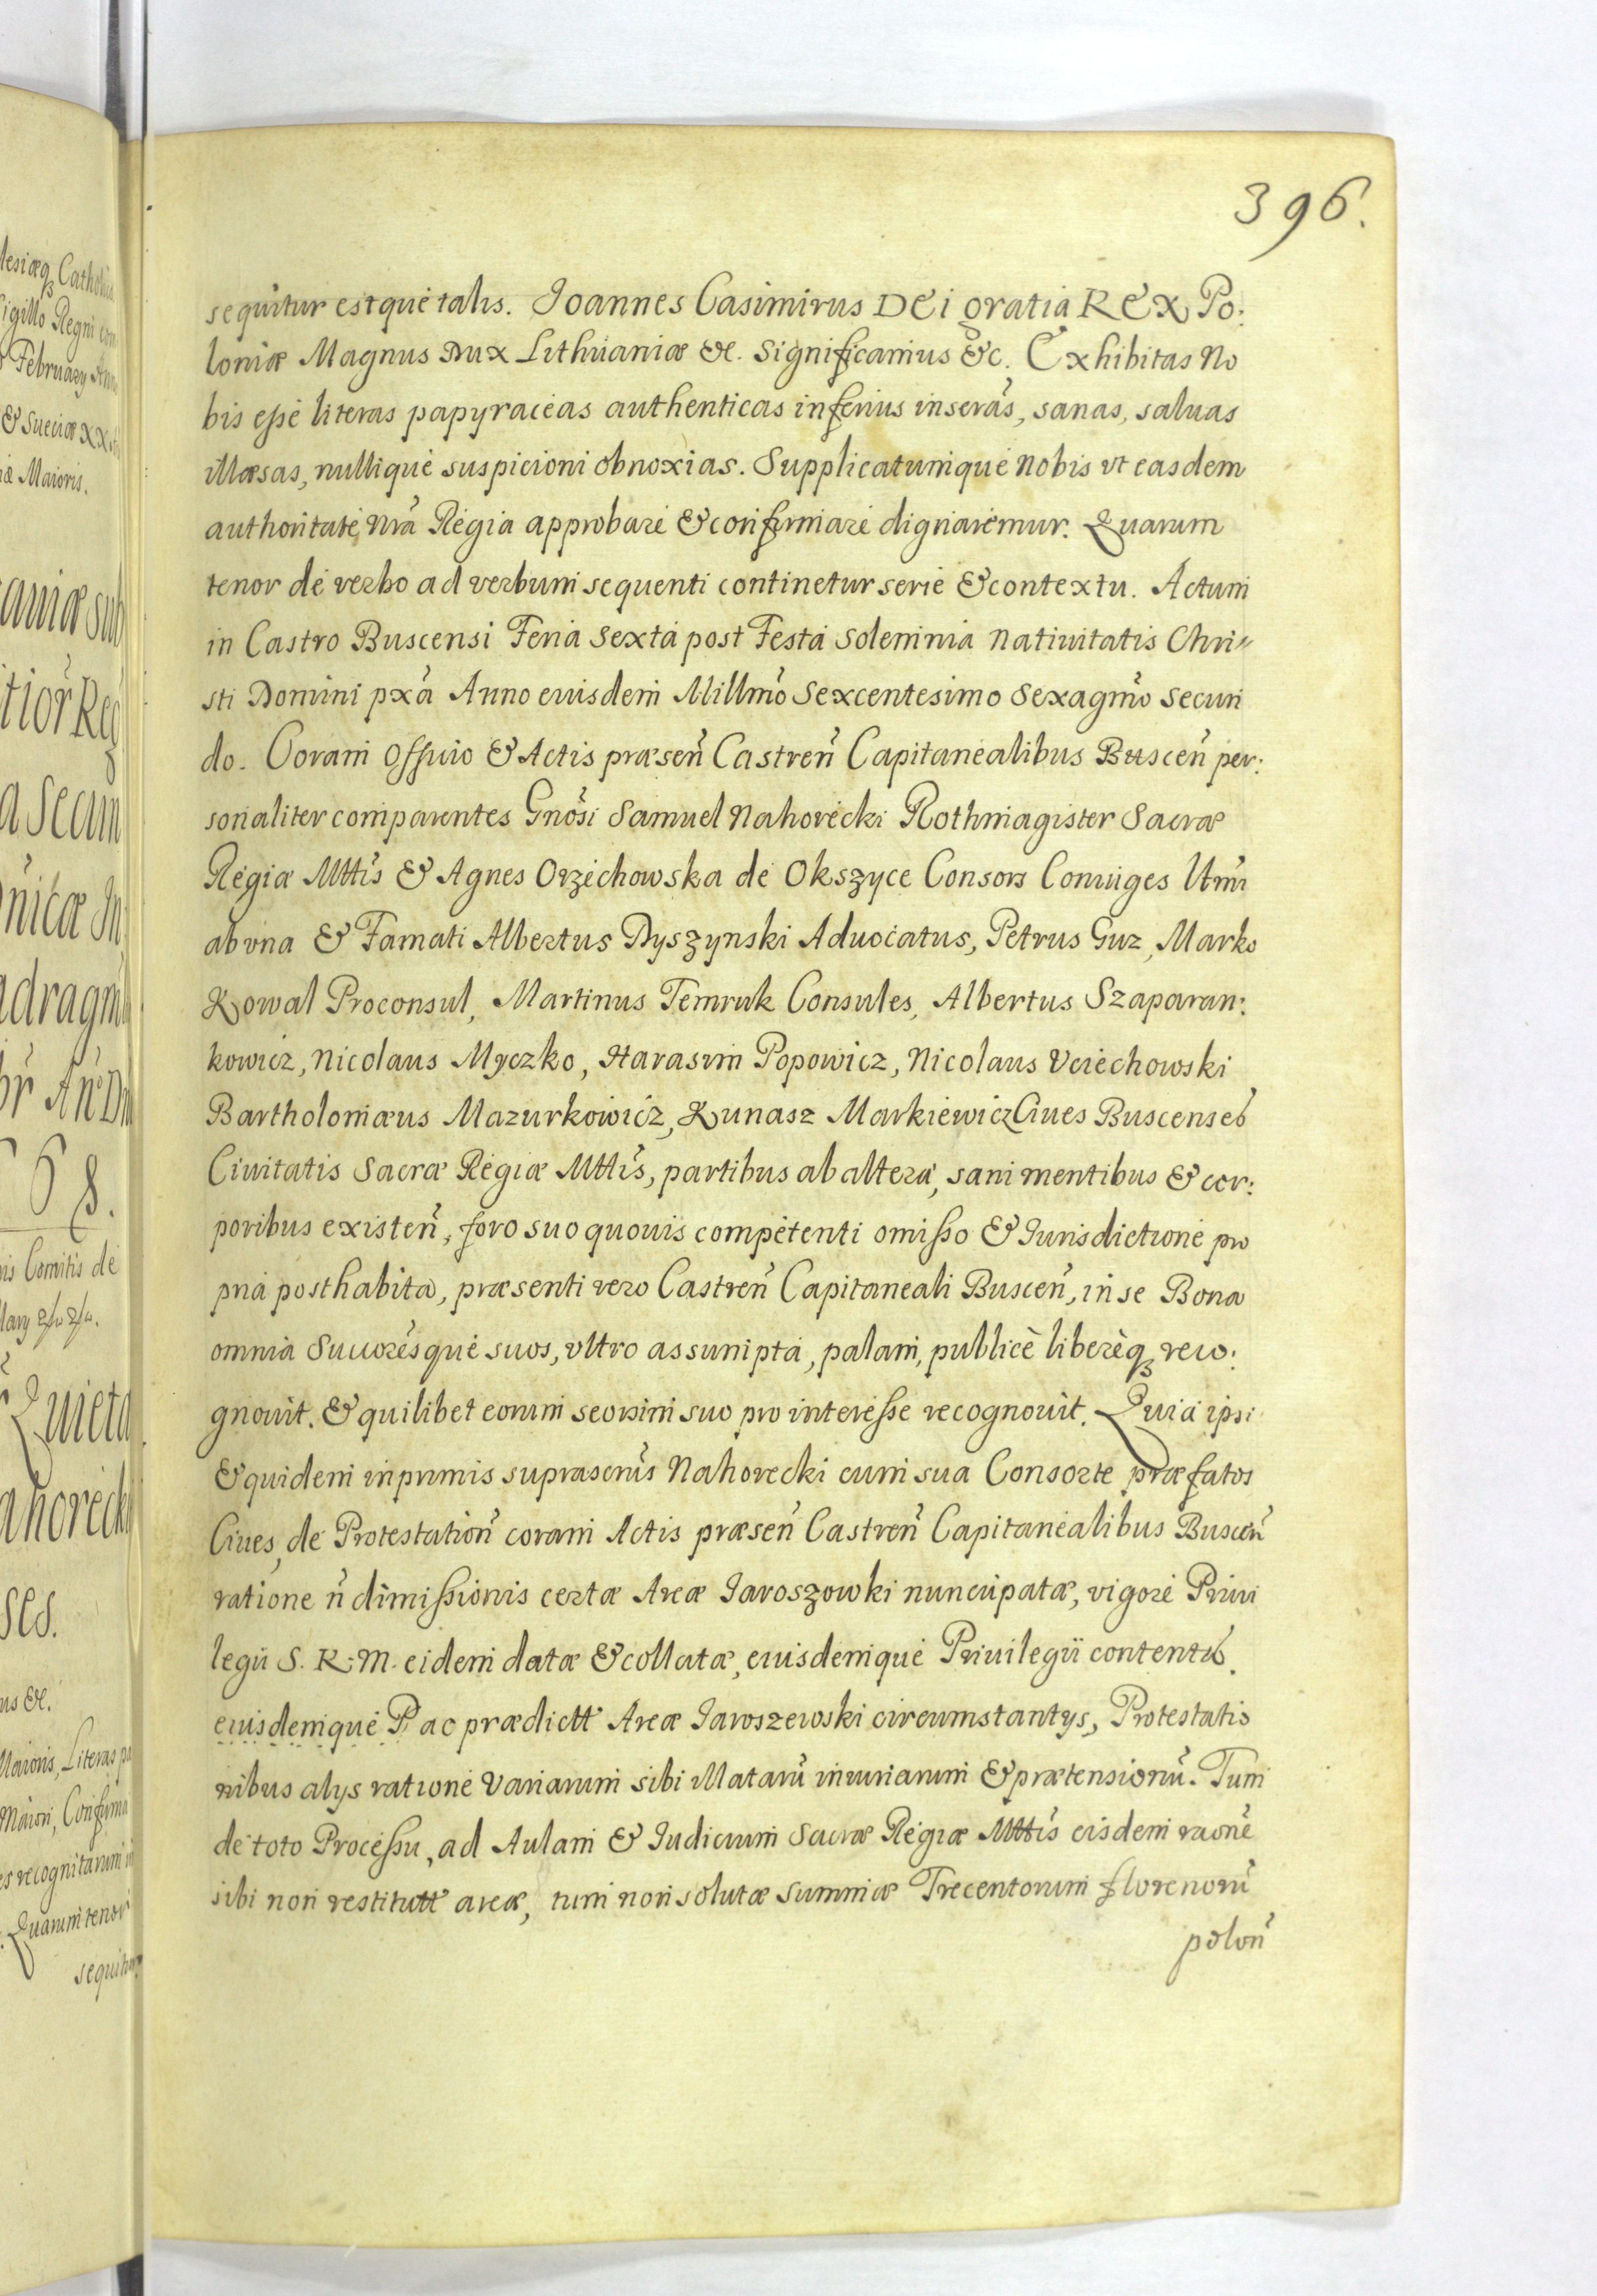 396.
sequitur estque talis. Ioannes Casimirus DEI gratia REX Po:
loniæ Magnus Dux Lithuaniæ &c. Significamus &c. Exhibitas No
bis esse literas papyraceas authenticas inferius inserãs, sanas, saluas
illæsas, nullique suspicioni obnoxias. Supplicatumque Nobis vt easdem
authoritate nrã Regia approbare & confirmare dignaremur. Quarum
tenor de verbo ad verbum sequenti continetur serie & contextu. Actum
in Castro Buscensi Feria Sexta post Festa Solemnia Natiuitatis Chri=
sti Domini pxã Anno eiusdem Millmõ Sexcentesimo Sexagmõ Secun
do. Coram Officio & Actis præseñ Castreñ Capitanealibus Busceñ per:
sonaliter comparentes Gnõsi Samuel Nahorecki Rothmagister Sacræ
Regiæ Mttis & Agnes Orzechowska de Okszyce Consors Coniuges Utrñ
ab vna & Famati Albertus Dyszynski Aduocatus, Petrus Guz, Marko
Kowal Proconsul, Martinus Temruk Consules, Albertus Szaparan:
kowicz, Nicolaus Myczko, Harasim Popowicz, Nicolaus Vciechowski
Bartholomæus Mazurkowicz, Kunasz Markiewicz Ciues Buscenses
Ciuitatis Sacræ Regiæ Mttis, partibus ab altera, sani mentibus & cor:
poribus existeñ, foro suo quouis competenti omisso & Iurisdictione pro
pria posthabita, præsenti vero Castreñ Capitaneali Busceñ, in se Bona
omnia Succoresque suos, vltro assumpta, palam, publicè liberèq reco:
gnouit. & quilibet eorum seorsim suo pro interesse recognouit. Quia ipsi
& quidem inprimis suprascrus Nahorecki cum sua Consorte præfatos
Ciues, de Protestationñ coram Actis præseñ Castreñ Capitanealibus Busceñ
ratione ñ dimissionis certæ Areæ Iaroszowki nuncupatæ, vigore Priui
legii S. R. M. eidem datæ & collatæ, eiusdemque Priuilegii contentis.
eiusdemque P. ac prædictt Areæ Iaroszewski circumstantys, Protestatio
nibus alys ratione Variarum sibi illatarũ iniuriarum & prætensionũ. Tum
de toto Processu, ad Aulam & Iudicium Sacræ Regiæ Mttis eisdem raõne
sibi non restitutt areæ, tum non solutæ summæ Trecentorum florenorũ
poloñ